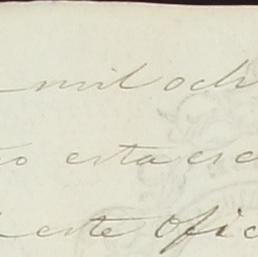 mil och
esta esc
este Ofic